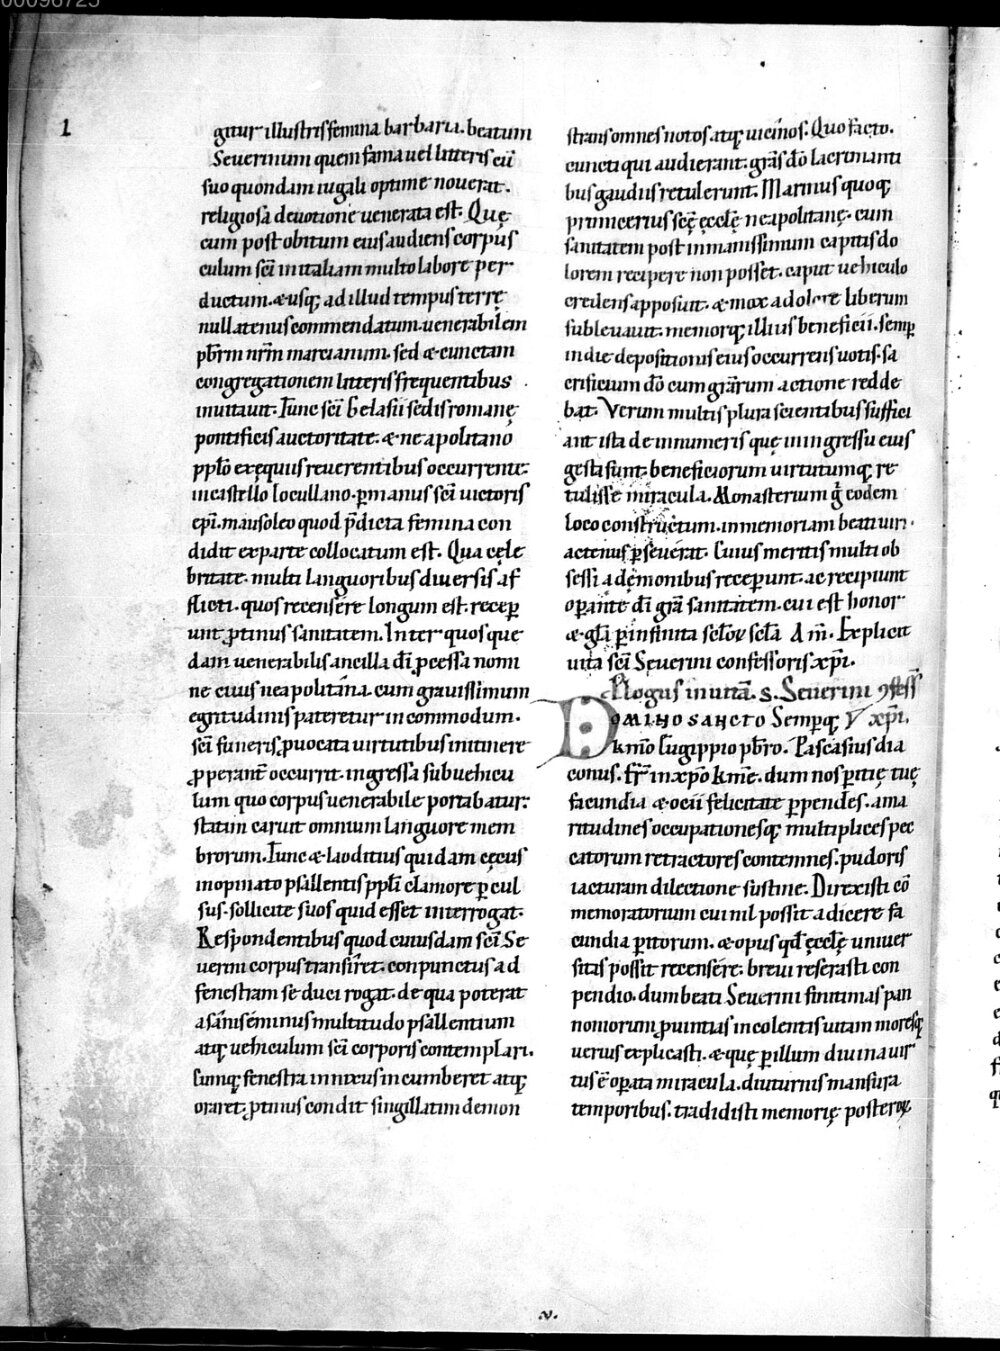 00098725
1
gitur illustris femina barbaria. beatum
Seuerinum quem fama uel litteris cū
suo quondam iugali optime nouerat.
religiosa deuotione uenerata est. Quę
cum post obitum eius audiens corpus
culum scī in italiam multo labore per
ductum. & usq; ad illud tempus terrę
nullatenus commendatum. uenerabilem
pbrm nrm marcianum. sed & cunctam
congregationem litteris frequentibus
inuitauit. Tunc scī Gelasii sedis romanę
pontificis auctoritate. & neapolitano
pplō exequiis reuerentibus occurrente.
in castello locullano. p̄ manus scī uictoris
epī. mausoleo quod p̄dicta femina con
didit ex parte collocatum est. Qua cęle
britate. multi languoribus diuersis af
flicti. quos recensere longum est. recep̄
unt p̱tinus sanitatem. Inter quos que
dam uenerabilis ancilla dī. p̱cessa nomi
ne ciuis neapolitana. cum grauissimum
egritudinis pateretur incommodum.
scī funeris p̱uocata uirtutibus in itinere
p̱perant̄ occurrit. ingressa sub uehicu
lum quo corpus uenerabile portabatur.
statim caruit omnium languore mem
brorum. Tunc & laoditius quidam cęcus
inopinato psallentis pplī clamore p̄cul
sus. sollicite suos quid esset interrogat.
Respondentibus quod cuiusdam scī Se
uerini corpus transiret. conpunctus ad
fenestram se duci rogat. de qua poterat
a sanis eminus multitudo psallentium
atq; uehiculum scī corporis contemplari.
Cumq; fenestra innixus incumberet atq;
oraret. p̱tinus condit singillatim demon
strans omnes notos. atq; uicinos. Quo facto.
cuncti qui audierant. grās dō lacrimanti
bus gaudiis retulerunt. Marinus quoq;
primicerius scę̄ ęcclę̄ neapolitanę. cum
sanitatem post inmanissimum capitis do
lorem recipere non posset. caput uehiculo
credens apposuit. & mox a dolore liberum
subleuauit. memorq; illius beneficii. semp̄
in die depositionis eius occurrens uotis. sa
crificium dō cum grārum actione redde
bat. Verum multis plura scientibus suffici
ant ista de innumeris quę in ingressu eius
gesta sunt. beneficiorum uirtutumq; re
tulisse miracula. Monasterium g̊ eodem
loco constructum. in memoriam beati uiri.
actenus p̄seuerat. Cuius meritis multi ob
sessi a dęmonibus recep̄unt. ac recipiunt
op̄ante dī grā sanitatem. cui est honor
& glā p̄ infinita sclōꝝ sclā Am̄. Explicit
uita scī Seuerini confessoris xp̄i.
Plogus in uitā. S. Seuerini ꝯfess
DOMINO SANCTO Semperq; ꝟ xp̄i.
kmō Eugippio pbrō. Pascasius dia
conus. Fr̄ in xp̄o kmē. dum nos p̄itię tuę
facundia & ocii felicitate p̄pendes. ama
ritudines occupationesq; multiplices pec
catorum retractores contemnes. pudoris
iacturam dilectione sustine. Direxisti cō
memoratorium cui nil possit adicere fa
cundia p̄itorum. & opus qd̄ ęcclę̄ uniuer
sitas possit recensere. breui reserasti con
pendio. dum beati Seuerini finitimas pan
noniorum p̱uintias incolentis uitam moresq;
uerius explicasti. & quę p̄ illum diuina uir
tus ē op̄ata miracula. diuturnis mansura
temporibus. tradidisti memorię posteroꝝ
.v.